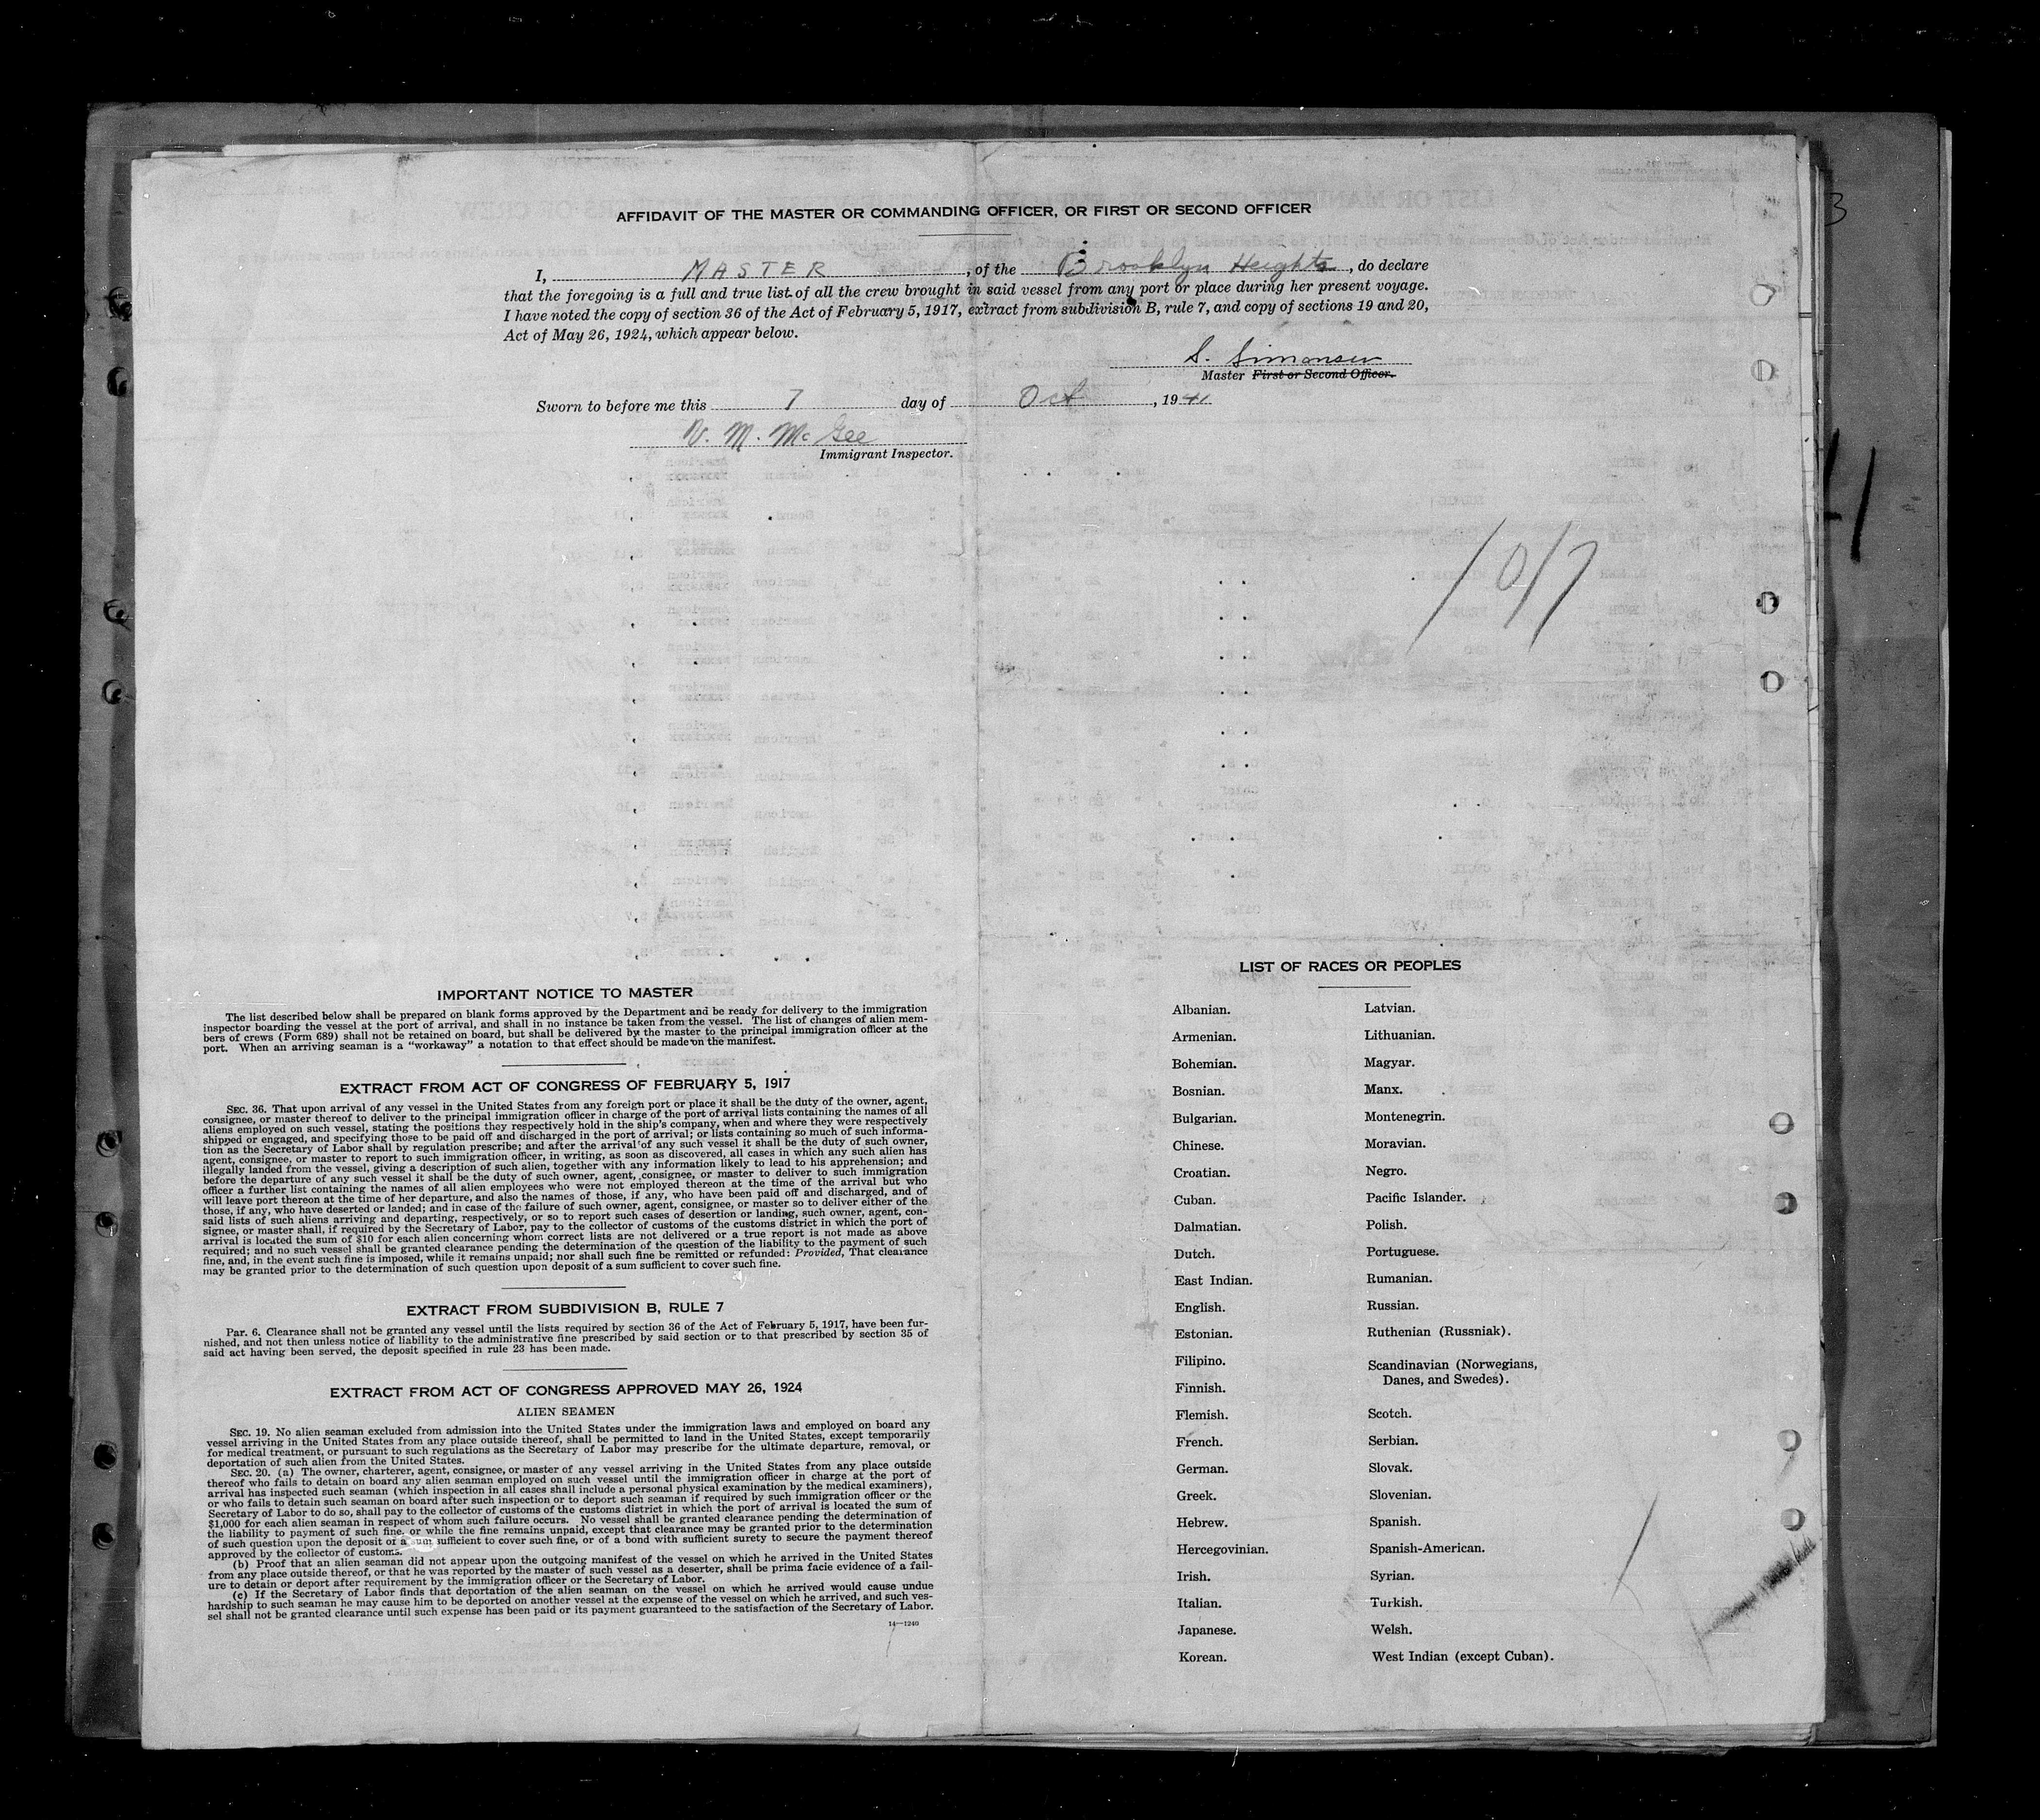 AFFIDAVIT OF THE MASTER OR COMMANDING OFFICER, OR FIRST OR SECOND OFFICER
I, MASTER, of the Brooklyn Heights, do declare
that the foregoing is a full and true list of all the crew brought in said vessel from any port or place during her present voyage.
I have noted the copy of section 36 of the Act of February 5, 1917, extract from subdivision B, rule 7, and copy of sections 19 and 20,
Act of May 26, 1924, which appear below.
S. Simonsen
Master First or Second Officer.
Sworn to before me this 7 day of Oct, 1941
V. M. McGee
Immigrant Inspector.
10/7
IMPORTANT NOTICE TO MASTER
The list described below shall be prepared on blank forms approved by the Department and be ready for delivery to the immigration
inspector boarding the vessel at the port of arrival, and shall in no instance be taken from the vessel. The list of changes of alien mem-
bers of crews (Form 689) shall not be retained on board, but shall be delivered by the master to the principal immigration officer at the
port. When an arriving seaman is a "workaway" a notation to that effect should be made on the manifest.
EXTRACT FROM ACT OF CONGRESS OF FEBRUARY 5, 1917
SEC. 36. That upon arrival of any vessel in the United States from any foreign port or place it shall be the duty of the owner, agent,
consignee, or master thereof to deliver to the principal immigration officer in charge of the port of arrival lists containing the names of all
aliens employed on such vessel, stating the positions they respectively hold in the ship's company, when and where they were respectively
shipped or engaged, and specifying those to be paid off and discharged in the port of arrival; or lists containing so much of such informa-
tion as the Secretary of Labor shall by regulation prescribe; and after the arrival of any such vessel it shall be the duty of such owner,
agent, consignee, or master to report to such immigration officer, in writing, as soon as discovered, all cases in which any such alien has
illegally landed from the vessel, giving a description of such alien, together with any information likely to lead to his apprehension; and
before the departure of any such vessel it shall be the duty of such owner, agent, consignee, or master to deliver to such immigration
officer a further list containing the names of all alien employees who were not employed thereon at the time of the arrival but who
will leave port thereon at the time of her departure, and also the names of those, if any, who have been paid off and discharged, and of
those, if any, who have deserted or landed; and in case of the failure of such owner, agent, consignee, or master so to deliver either of the
said lists of such aliens arriving and departing, respectively, or so to report such cases of desertion or landing, such owner, agent, con-
signee, or master shall, if required by the Secretary of Labor, pay to the collector of customs of the customs district in which the port of
arrival is located the sum of $10 for each alien concerning whom correct lists are not delivered or a true report is not made as above
required; and no such vessel shall be granted clearance pending the determination of the question of the liability to the payment of such
fine, and, in the event such fine is imposed, while it remains unpaid; nor shall such fine be remitted or refunded: Provided, That clearance
may be granted prior to the determination of such question upon deposit of a sum sufficient to cover such fine.
EXTRACT FROM SUBDIVISION B, RULE 7
Par. 6. Clearance shall not be granted any vessel until the lists required by section 36 of the Act of February 5, 1917, have been fur-
nished, and not then unless notice of liability to the administrative fine prescribed by said section or to that prescribed by section 35 of
said act having been served, the deposit specified in rule 23 has been made.
EXTRACT FROM ACT OF CONGRESS APPROVED MAY 26, 1924
ALIEN SEAMEN
SEC. 19. No alien seaman excluded from admission into the United States under the immigration laws and employed on board any
vessel arriving in the United States from any place outside thereof, shall be permitted to land in the United States, except temporarily
for medical treatment, or pursuant to such regulations as the Secretary of Labor may prescribe for the ultimate departure, removal, or
deportation of such alien from the United States.
SEC. 20. (a) The owner, charterer, agent, consignee, or master of any vessel arriving in the United States from any place outside
thereof who fails to detain on board any alien seaman employed on such vessel until the immigration officer in charge at the port of
arrival has inspected such seaman (which inspection in all cases shall include a personal physical examination by the medical examiners),
or who fails to detain such seaman on board after such inspection or to deport such seaman if required by such immigration officer or the
Secretary of Labor to do so, shall pay to the collector of customs of the customs district in which the port of arrival is located the sum of
$1,000 for each alien seaman in respect of whom such failure occurs. No vessel shall be granted clearance pending the determination of
the liability to payment of such fine, or while the fine remains unpaid, except that clearance may be granted prior to the determination
of such question upon the deposit of a sum sufficient to cover such fine, or of a bond with sufficient surety to secure the payment thereof
approved by the collector of customs.
(b) Proof that an alien seaman did not appear upon the outgoing manifest of the vessel on which he arrived in the United States
from any place outside thereof, or that he was reported by the master of such vessel as a deserter, shall be prima facie evidence of a fail-
ure to detain or deport after requirement by the immigration officer or the Secretary of Labor.
(c) If the Secretary of Labor finds that deportation of the alien seaman on the vessel on which he arrived would cause undue
hardship to such seaman he may cause him to be deported on another vessel at the expense of the vessel on which he arrived, and such ves-
sel shall not be granted clearance until such expense has been paid or its payment guaranteed to the satisfaction of the Secretary of Labor.
14—1240
LIST OF RACES OR PEOPLES
Albanian.
Armenian.
Bohemian.
Bosnian.
Bulgarian.
Chinese.
Croatian.
Cuban.
Dalmatian.
Dutch.
East Indian.
English.
Estonian.
Filipino.
Finnish.
Flemish.
French.
German.
Greek.
Hebrew.
Hercegovinian.
Irish.
Italian.
Japanese.
Korean.
Latvian.
Lithuanian.
Magyar.
Manx.
Montenegrin.
Moravian.
Negro.
Pacific Islander.
Polish.
Portuguese.
Rumanian.
Russian.
Ruthenian (Russniak).
Scandinavian (Norwegians,
Danes, and Swedes).
Scotch.
Serbian.
Slovak.
Slovenian.
Spanish.
Spanish-American.
Syrian.
Turkish.
Welsh.
West Indian (except Cuban).